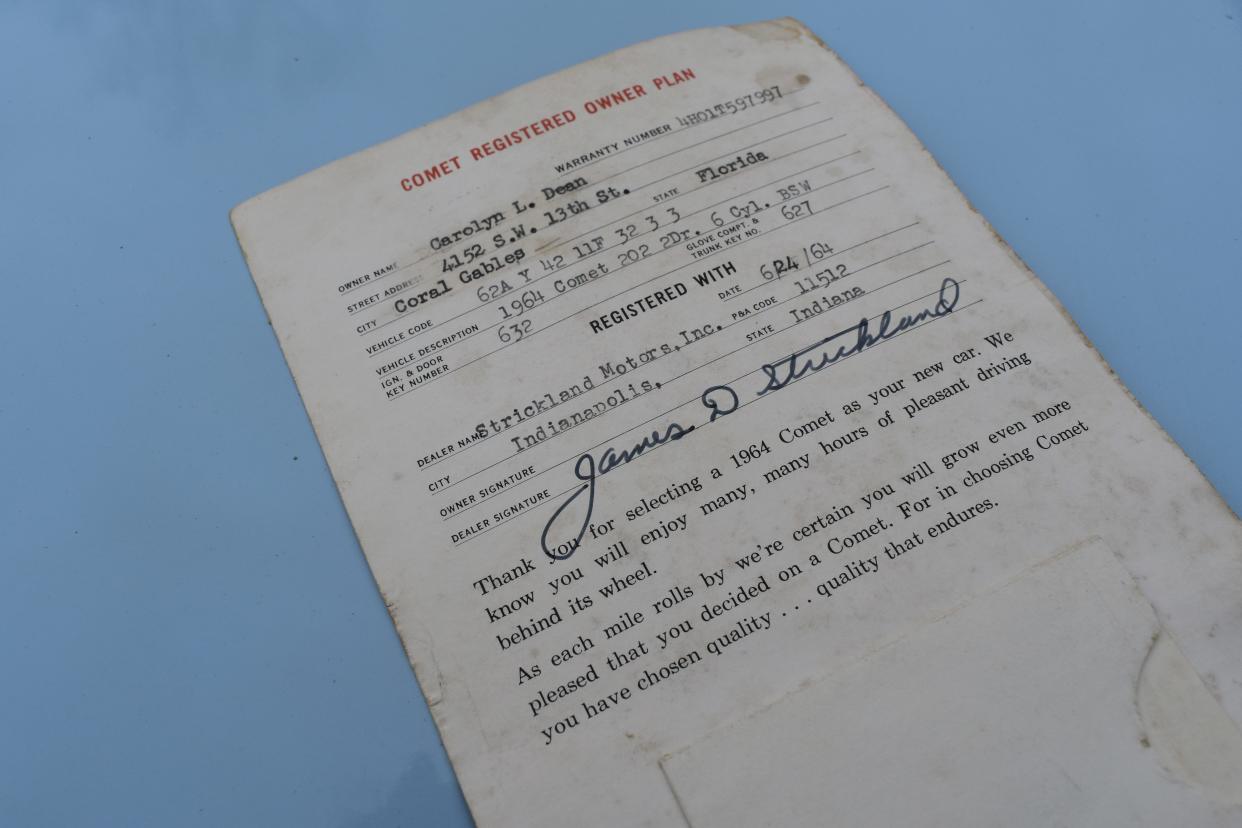 COMET REGISTERED OWNER PLAN
WARRANTY NUMBER 4H01T597997
OWNER NAME Carolyn L. Dean
STREET ADDRESS 4152 S.W. 13th St.
CITY Coral Gables STATE Florida
VEHICLE CODE 62A Y 42 11F 32 3 3
VEHICLE DESCRIPTION 1964 Comet 202 2Dr. 6 Cyl. BSW
IGN. & DOOR KEY NUMBER 632 GLOVE COMPT. & TRUNK KEY NO. 627
REGISTERED WITH
DATE 6/24/64
DEALER NAME Strickland Motors, Inc. P&A CODE 11512
CITY Indianapolis, STATE Indiana
OWNER SIGNATURE
DEALER SIGNATURE James D Strickland
Thank you for selecting a 1964 Comet as your new car. We
know you will enjoy many, many hours of pleasant driving
behind its wheel.
As each mile rolls by we're certain you will grow even more
pleased that you decided on a Comet. For in choosing Comet
you have chosen quality . . . quality that endures.